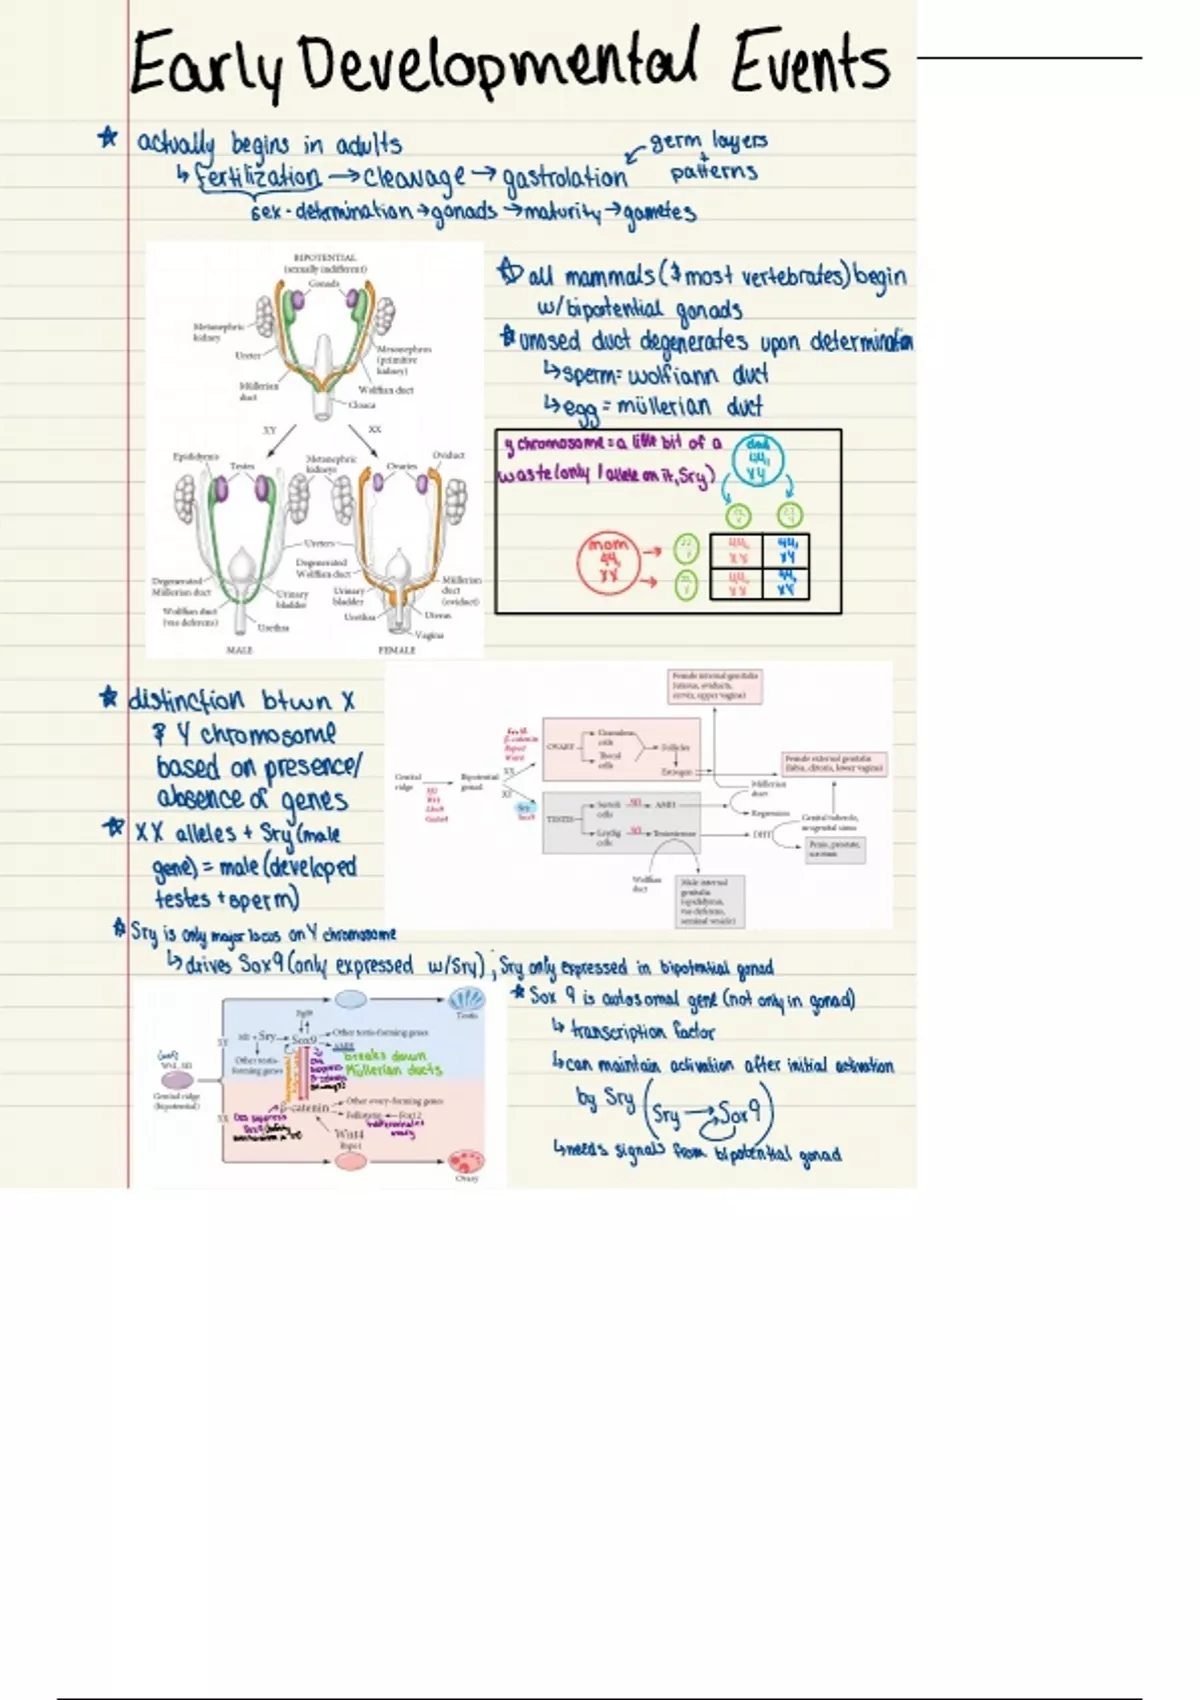 Early Developmental Events
☆ actually begins in adults
↳ fertilization → cleavage → gastrolation ↙ germ layers + patterns
sex-determination → gonads → maturity → gametes
BIPOTENTIAL
(sexually indifferent)
Gonads
Metanephric
kidney
Ureter
Müllerian
duct
Mesonephros
(primitive
kidney)
Wolffian duct
Cloaca
XY
XX
Epididymis
Testes
Metanephric
kidneys
Ovaries
Oviduct
Ureters
Degenerated
Wolffian duct
Degenerated
Müllerian duct
Urinary
bladder
Urinary
bladder
Müllerian
duct
(oviduct)
Wolffian duct
(vas deferens)
Urethra
Urethra
Uterus
Vagina
MALE
FEMALE
☆ all mammals (& most vertebrates) begin
w/ bipotential gonads
☆ unused duct degenerates upon determination
↳ sperm = wolfiann duct
↳ egg = müllerian duct
y chromosome = a little bit of a
waste (only 1 allele on it, Sry)
dad
44,
XY
mom
44,
XX
44,
XX
44,
XY
44,
XX
44,
XY
☆ distinction btwn X
& Y chromosome
based on presence/
absence of genes
☆ XX alleles + Sry (male
gene) = male (developed
testes + sperm)
☆ Sry is only major locus on Y chromosome
↳ drives Sox9 (only expressed w/ Sry) ; Sry only expressed in bipotential gonad
Female internal genitalia
(uterus, oviducts,
cervix, upper vagina)
Genital
ridge
Bipotential
gonad
XX
XY
β-catenin
Sry
Sox9
OVARY
Granulosa
cells
Thecal
cells
Follicles
Estrogen
Female external genitalia
(labia, clitoris, lower vagina)
TESTIS
Sertoli
cells
AMH
Leydig
cells
Testosterone
Müllerian
duct
Regression
DHT
Genital tubercle,
urogenital sinus
Penis, prostate,
scrotum
Wolffian
duct
Male internal
genitalia
(epididymis,
vas deferens,
seminal vesicle)
☆ Sox 9 is autosomal gene (not only in gonad)
↳ transcription factor
↳ can maintain activation after initial activation
by Sry (Sry → Sox9)
↳ needs signals from bipotential gonad
Testis
Fgf9
Sry
Sox9
Other testis-forming genes
AMH
Other testis-
forming genes
breaks down
Müllerian ducts
Genital ridge
(bipotential)
XY
XX
β-catenin
Other ovary-forming genes
Follistatin
Wnt4
Rspo1
Ovary